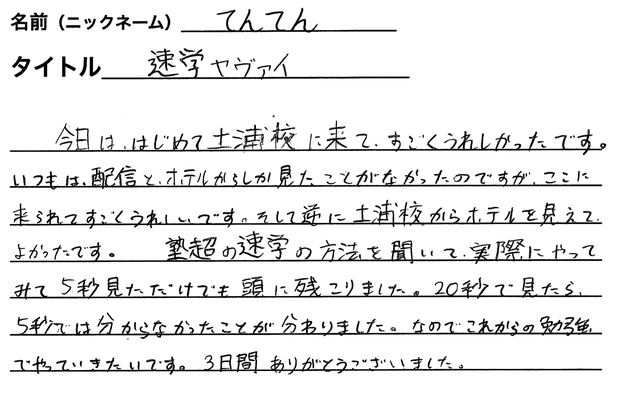 名前（ニックネーム） てんてん
タイトル 速学ヤヴァイ
今日は、はじめて土浦校に来て、すごくうれしかったです。
いつもは、配信と、ホテルからしか見たことがなかったのですが、ここに
来られてすごくうれしいです。そして逆に土浦校からホテルを見えて、
よかったです。 塾超の速学の方法を聞いて、実際にやって
みて5秒見ただけでも頭に残こりました。20秒で見たら、
5秒では分からなかったことが分わりました。なのでこれからの勉強
でやっていきたいです。3日間ありがとうございました。